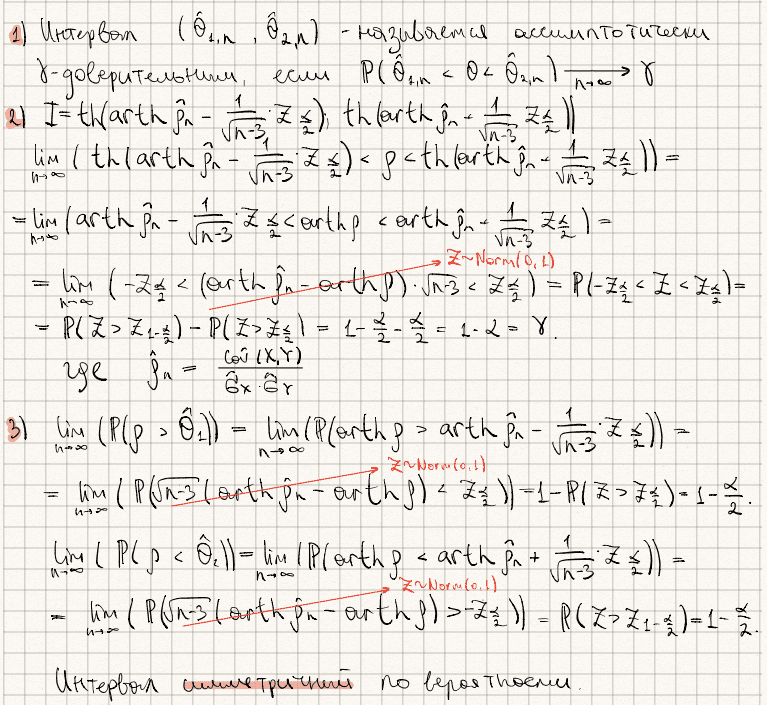 1) Интервал (θ̂₁,ₙ , θ̂₂,ₙ) - называется ассимптотически
γ-доверительным, если P(θ̂₁,ₙ < θ < θ̂₂,ₙ) →(n→∞) γ
2) I = th(arth ρ̂ₙ - 1/√(n-3) · Z_{α/2}); th(arth ρ̂ₙ + 1/√(n-3) Z_{α/2}))
lim_{n→∞} (th(arth ρ̂ₙ - 1/√(n-3) · Z_{α/2}) < ρ < th(arth ρ̂ₙ + 1/√(n-3) Z_{α/2})) =
= lim_{n→∞} (arth ρ̂ₙ - 1/√(n-3) · Z_{α/2} < arth ρ < arth ρ̂ₙ + 1/√(n-3) Z_{α/2}) =
Z~Norm(0,1)
= lim_{n→∞} (-Z_{α/2} < (arth ρ̂ₙ - arth ρ) · √(n-3) < Z_{α/2}) = P(-Z_{α/2} < Z < Z_{α/2}) =
= P(Z > Z_{1-α/2}) - P(Z > Z_{α/2}) = 1 - α/2 - α/2 = 1 - α = γ.
где ρ̂ₙ = cov̂(X,Y) / (σ̂_X · σ̂_Y)
3) lim_{n→∞} (P(ρ > θ̂₁)) = lim_{n→∞} (P(arth ρ > arth ρ̂ₙ - 1/√(n-3) · Z_{α/2})) =
Z~Norm(0,1)
= lim_{n→∞} (P(√(n-3) (arth ρ̂ₙ - arth ρ) < Z_{α/2})) = 1 - P(Z > Z_{α/2}) = 1 - α/2.
lim_{n→∞} (P(ρ < θ̂₂)) = lim_{n→∞} (P(arth ρ < arth ρ̂ₙ + 1/√(n-3) · Z_{α/2})) =
Z~Norm(0,1)
= lim_{n→∞} (P(√(n-3) (arth ρ̂ₙ - arth ρ) > -Z_{α/2})) = P(Z > Z_{1-α/2}) = 1 - α/2.
Интервал симметричний по вероятности.